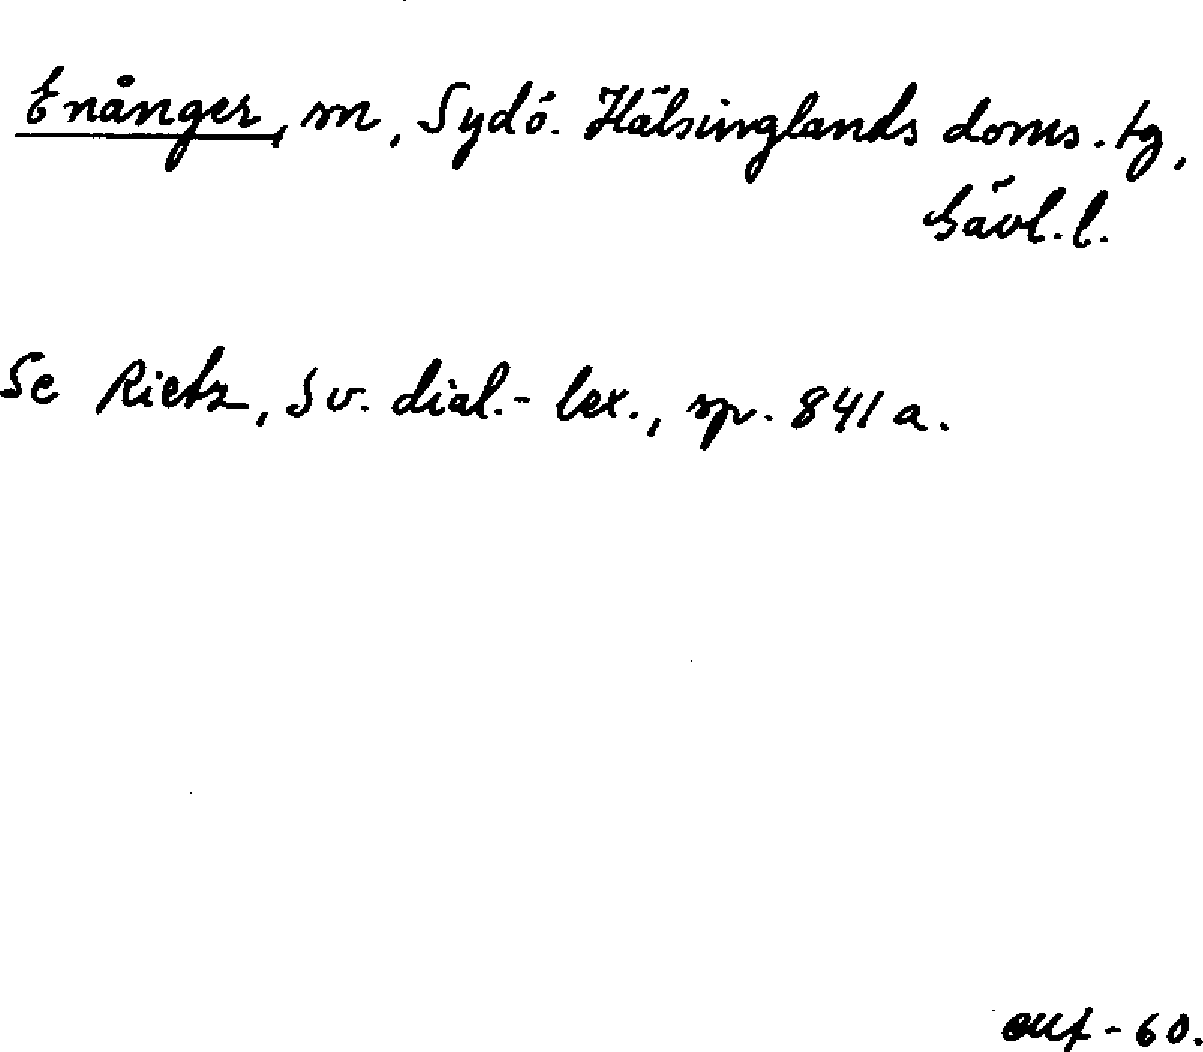 Enånger, sn, Sydö. Hälsinglands doms. tg,
Gävl. l.
Se Rietz, Sv. dial.-lex., sp. 841 a.
-60.